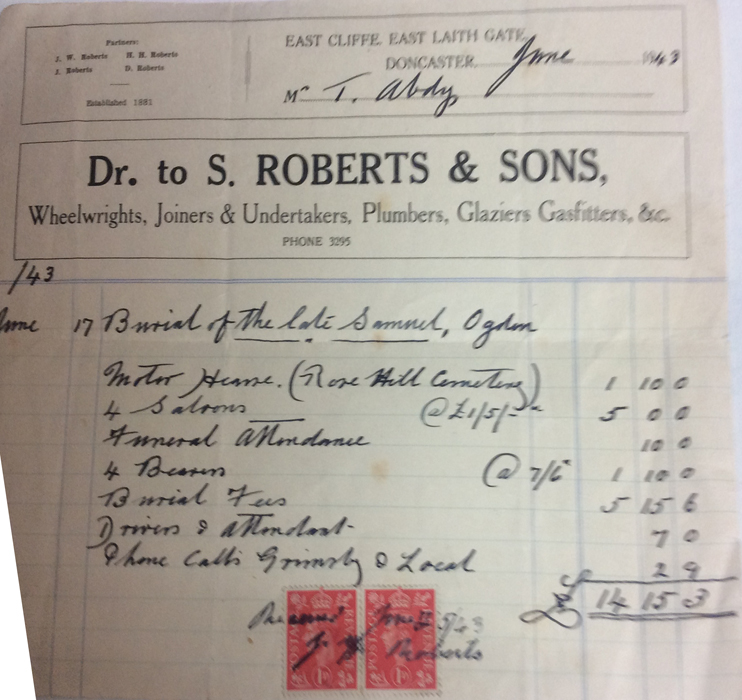 Partners:
J. W. Roberts H. H. Roberts
J. Roberts D. Roberts
Established 1881
EAST CLIFFE, EAST LAITH GATE,
DONCASTER, June 1943
Mr T. Abdy
Dr. to S. ROBERTS & SONS,
Wheelwrights, Joiners & Undertakers, Plumbers, Glaziers Gasfitters, &c.
PHONE 3295
/43
June 17 Burial of the late Samuel, Ogden
Motor Hearse. (Rose Hill Cemetery) 1 10 0
4 Saloons @ £1/5/- 5 0 0
Funeral Attendance 10 0
4 Bearers @ 7/6 1 10 0
Burial Fees 5 15 6
Drivers & Attendant 7 0
Phone Calls Grimsby & Local 2 9
£ 14 15 3
Received June 5/43
J. Roberts
POSTAGE POSTAGE
1D 1D